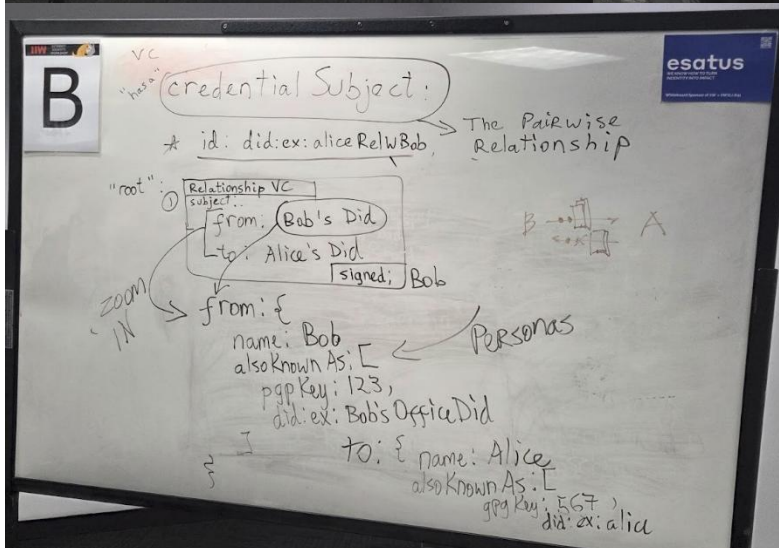 IIW
B
esatus
WE KNOW HOW TO TURN
IDENTITY INTO IMPACT
VC
"has a"
credential Subject:
* id: did:ex:aliceRelwBob
The Pairwise
Relationship
"root":
①
Relationship VC
subject:..
from: Bob's Did
to: Alice's Did
signed; Bob
B
A
zoom
IN
from: {
name: Bob
alsoKnown As: [
pgpKey: 123,
did:ex: Bob's Office Did
]
}
Personas
to: { name: Alice
alsoKnown As: [
gpgKey: 567,
did:ex:alice